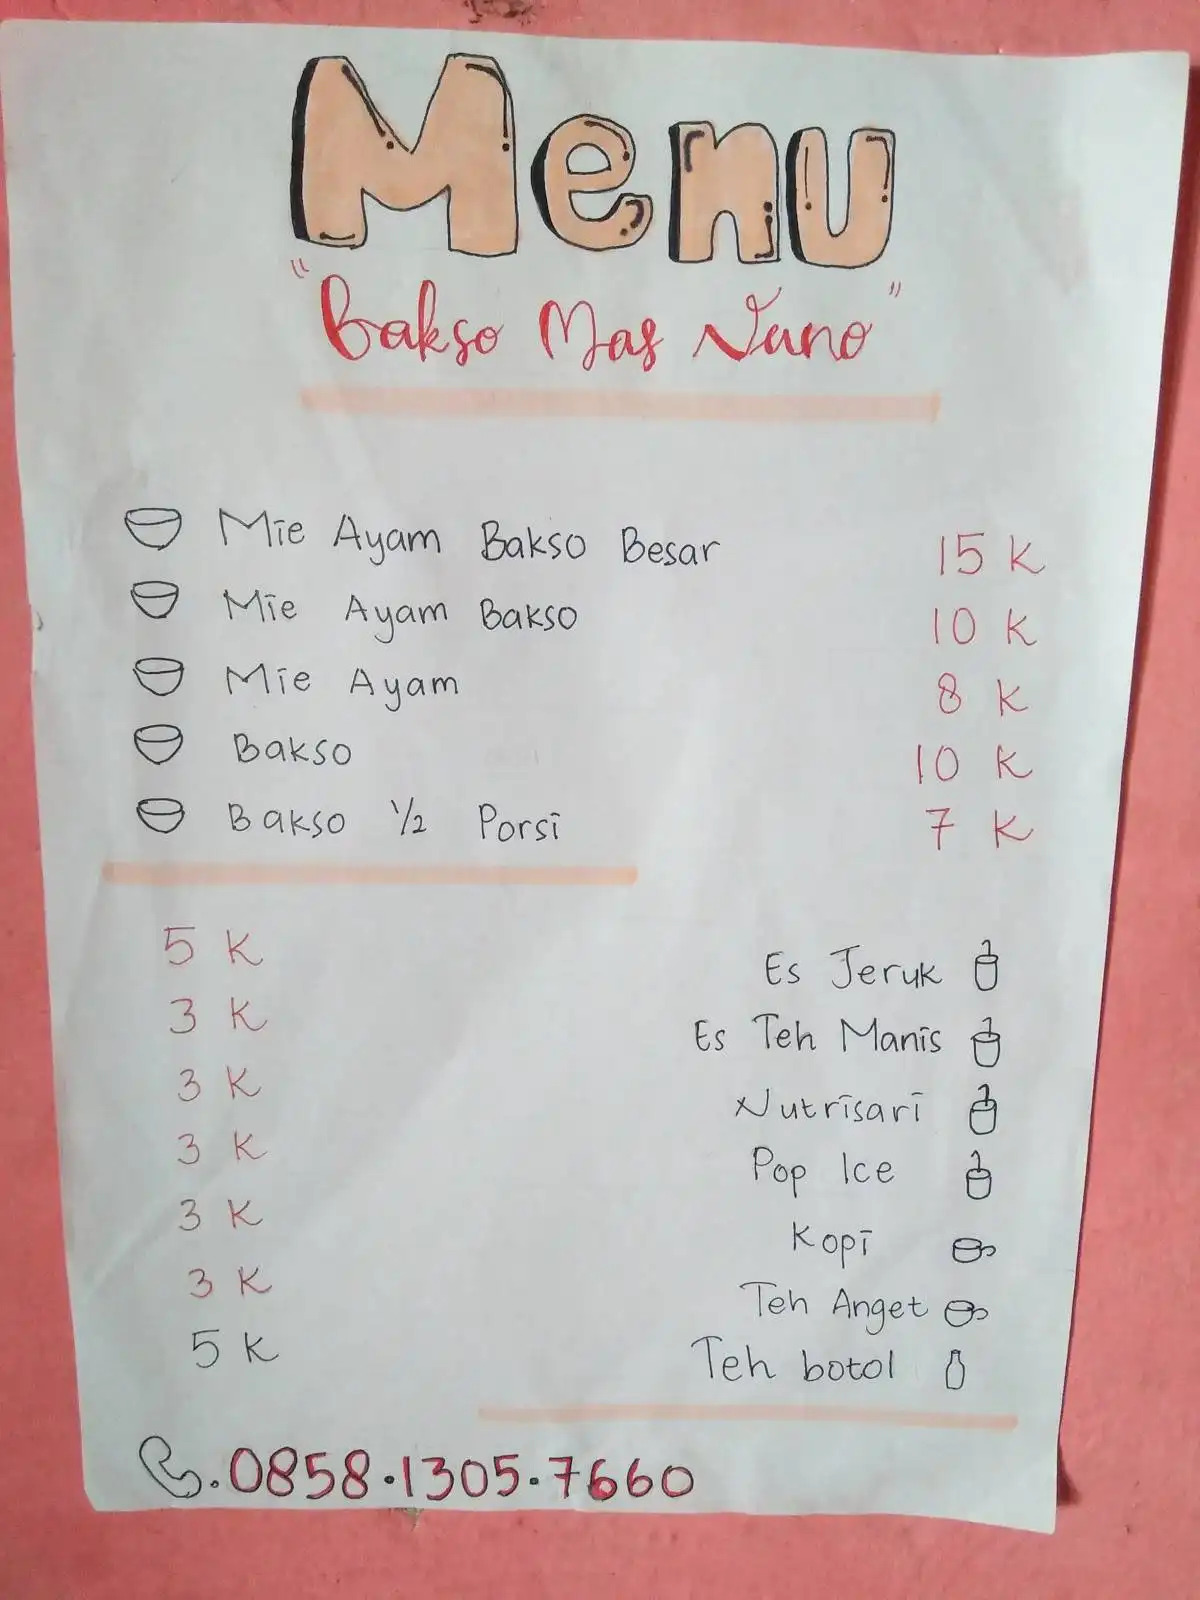 Menu
"Bakso Mas Nano"
Mie Ayam Bakso Besar 15 K
Mie Ayam Bakso 10 K
Mie Ayam 8 K
Bakso 10 K
Bakso 1/2 Porsi 7 K
5 K Es Jeruk
3 K Es Teh Manis
3 K Nutrisari
3 K Pop Ice
3 K Kopi
3 K Teh Anget
5 K Teh botol
.0858.1305.7660